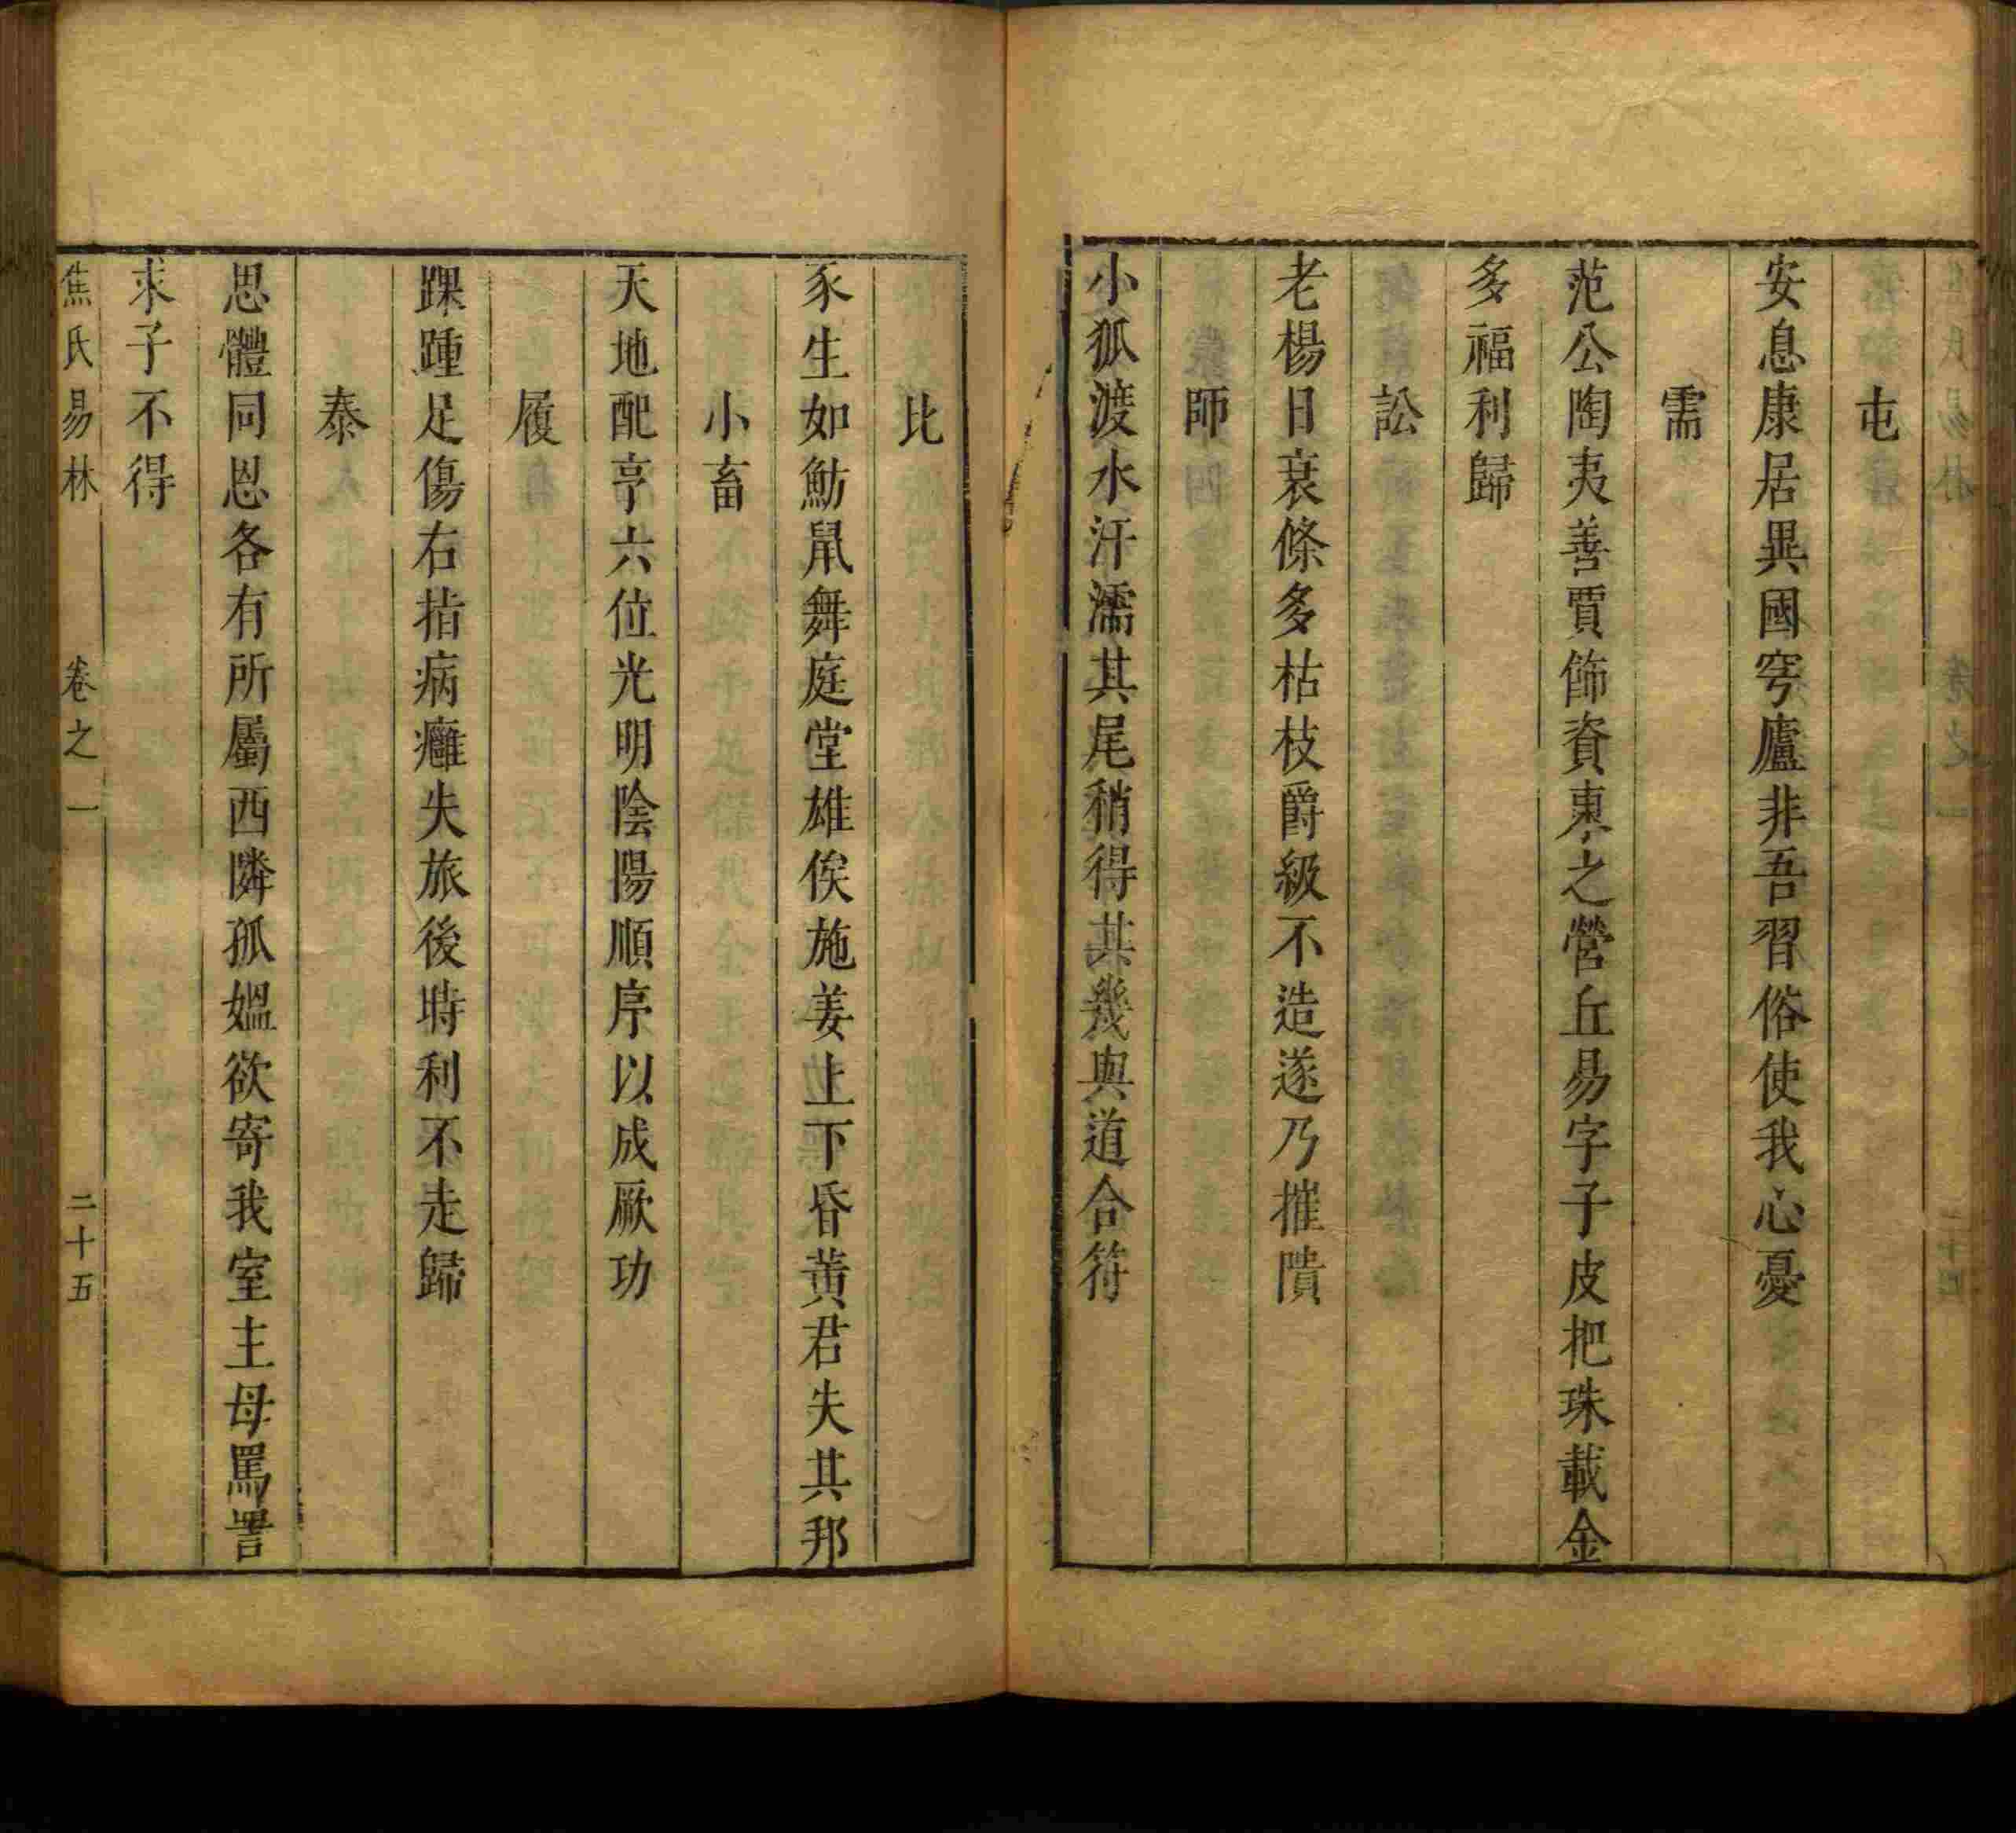 屯
安息康居異國穹廬非吾習俗使我心憂
需
范公陶夷善賈飾資東之營丘易字子皮把珠載金
多福利歸
訟
老楊日衰條多枯枝爵級不造遂乃摧隤
師
小狐渡水汙濡其尾稍得其幾與道合符
比
豕生如魴鼠舞庭堂雄俟施姜上下昏黃君失其邦
小畜
天地配亨六位光明陰陽順序以成厥功
履
踝踵足傷右指病癰失旅後時利不走歸
泰
思體同恩各有所屬西隣孤媼欲寄我室主母罵詈
求子不得
焦氏易林 卷之一 二十五